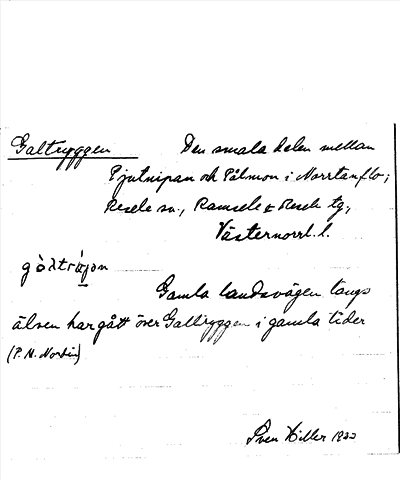 Galtryggen Den smala delen mellan
Pjutnipan och Pålmon i Norrtanflo;
Resele sn., Ramsele & Resele tg,
Västernorrl. l.
gòltrájon
Gamla landsvägen längs
älven har gått över Galtryggen i gamla tider
(P. N. Nordin)
Sven Hiller